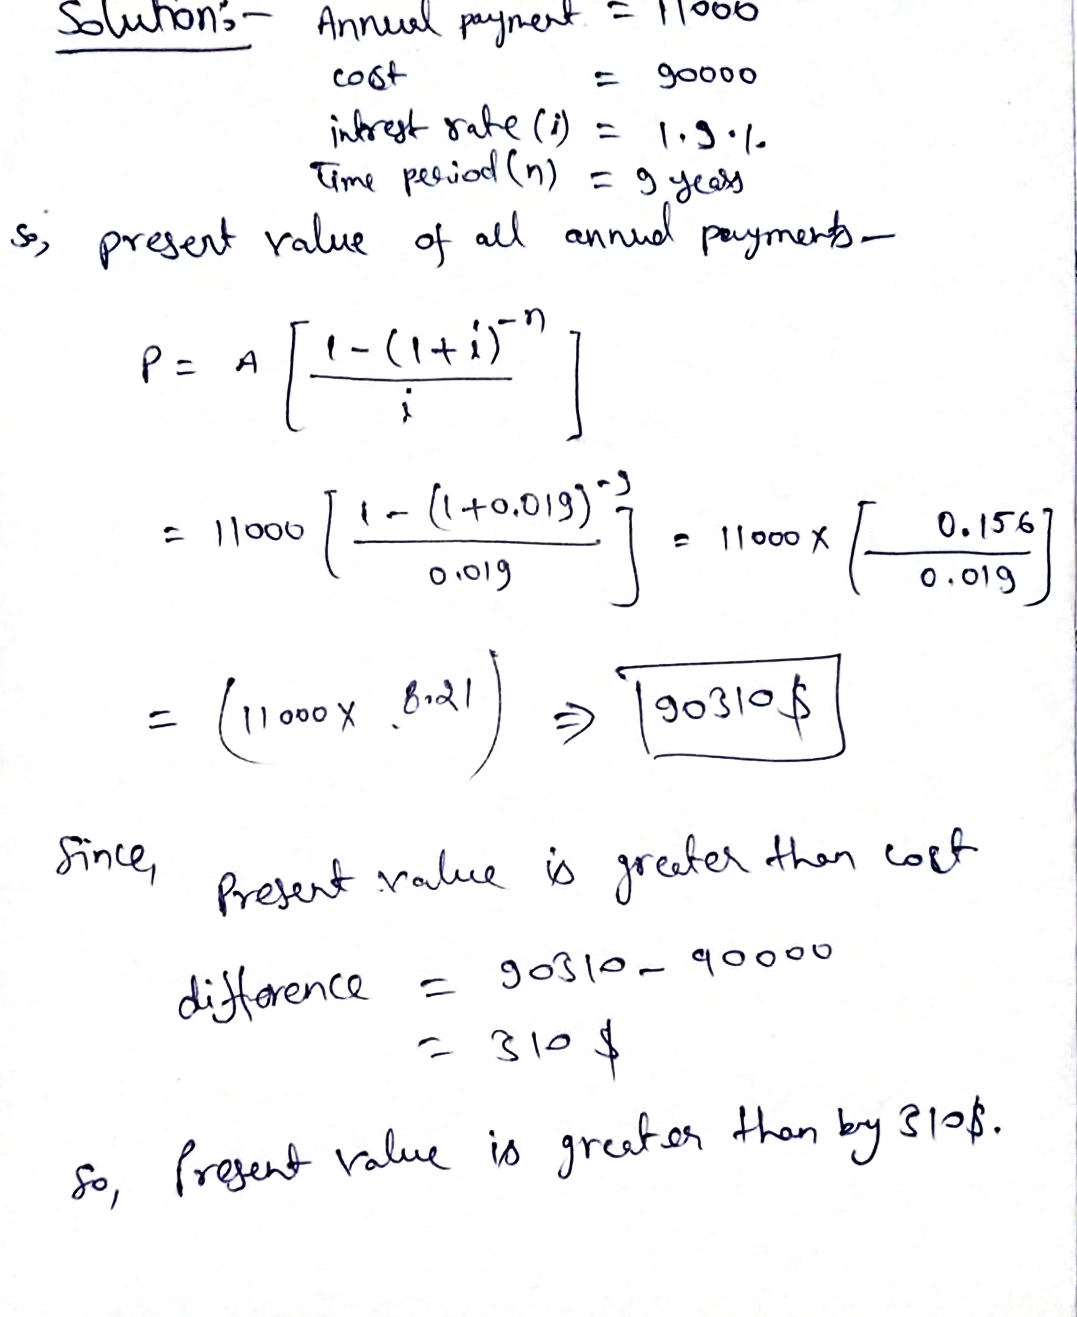 Solution:- Annual payment = 11000
cost = 90000
intrest rate (i) = 1.9%
Time period (n) = 9 years
So, present value of all annual payments -
P = A [ (1 - (1+i)^-n) / i ]
= 11000 [ (1 - (1+0.019)^-9) / 0.019 ] = 11000 x [ 0.156 / 0.019 ]
= (11000 x 8.21) ⇒ 90310$
Since, Present value is greater than cost
difference = 90310 - 90000
= 310 $
So, Present value is greater than by 310$.